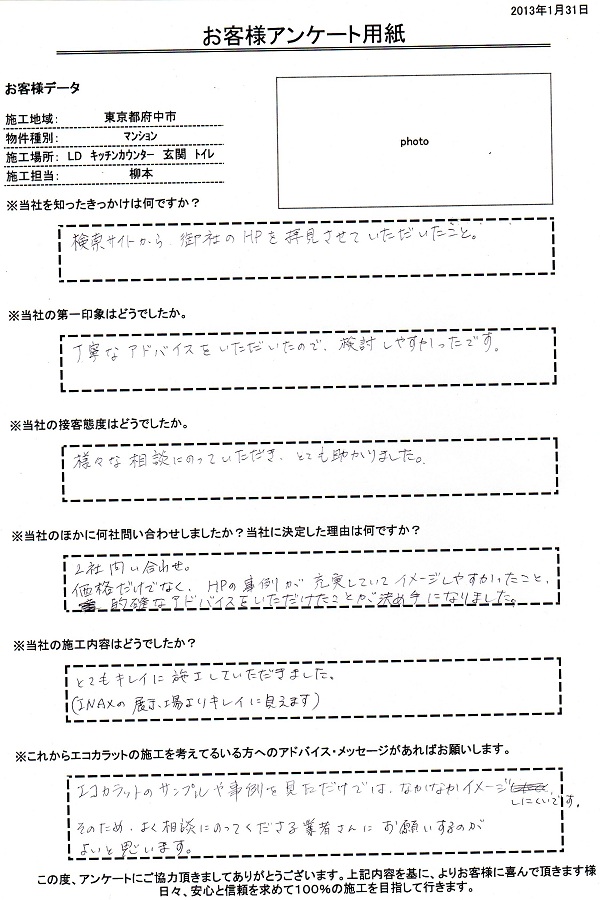 2013年1月31日
お客様アンケート用紙
お客様データ
施工地域: 東京都府中市
物件種別: マンション
施工場所: LD キッチンカウンター 玄関 トイレ
施工担当: 柳本
photo
※当社を知ったきっかけは何ですか？
検索サイトから 御社のHPを拝見させていただいたこと。
※当社の第一印象はどうでしたか。
丁寧なアドバイスをいただいたので、検討しやすかったです。
※当社の接客態度はどうでしたか。
様々な相談にのっていただき、とても助かりました。
※当社のほかに何社問い合わせしましたか？当社に決定した理由は何ですか？
2社問い合わせ。
価格だけでなく、HPの事例が充実していてイメージしやすかったこと、
的確なアドバイスをいただけたことが決め手になりました。
※当社の施工内容はどうでしたか？
とてもキレイに施工していただきました。
(INAXの展示場よりキレイに見えます)
※これからエコカラットの施工を考えてるいる方へのアドバイス・メッセージがあればお願いします。
エコカラットのサンプルや事例を見ただけでは、なかなかイメージ
しにくいです。
そのため、よく相談にのってくださる業者さんにお願いするのが
よいと思います。
この度、アンケートにご協力頂きましてありがとうございます。上記内容を基に、よりお客様に喜んで頂きます様
日々、安心と信頼を求めて100%の施工を目指して行きます。